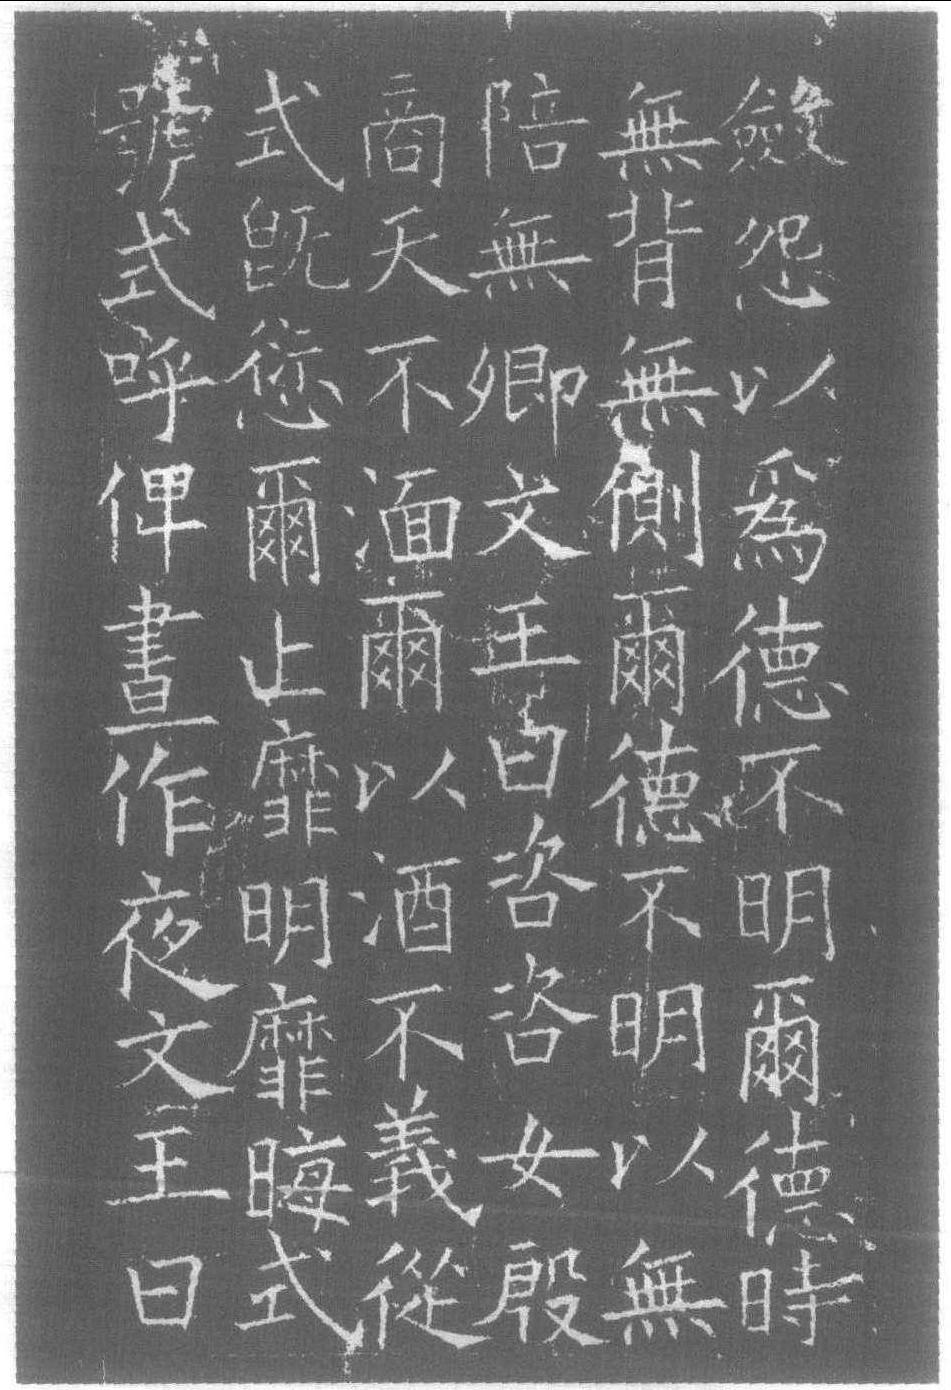 斂怨以爲德不明爾德時
無背無側爾德不明以無
陪無卿文王曰咨咨女殷
商天不湎爾以酒不義從
式既愆爾止靡明靡晦式
號式呼俾晝作夜文王曰